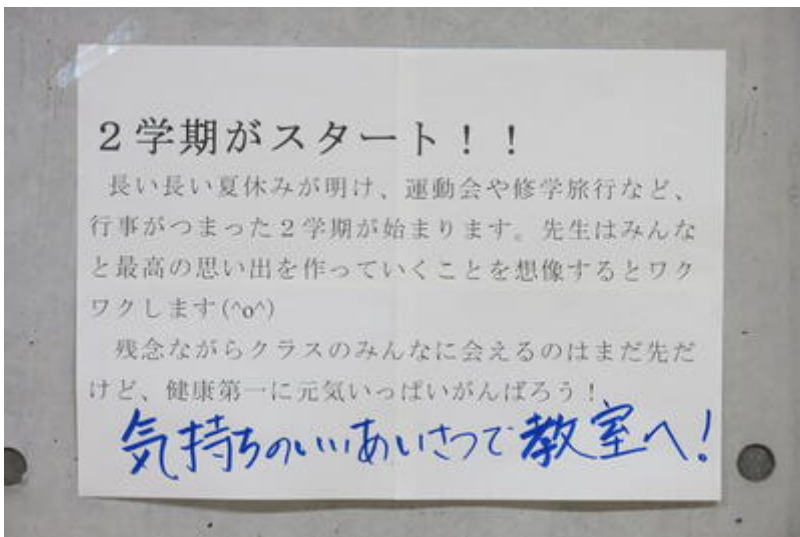 ２学期がスタート！！
長い長い夏休みが明け、運動会や修学旅行など、
行事がつまった２学期が始まります。先生はみんな
と最高の思い出を作っていくことを想像するとワク
ワクします(^o^)
残念ながらクラスのみんなに会えるのはまだ先だ
けど、健康第一に元気いっぱいがんばろう！
気持ちのいいあいさつで教室へ!